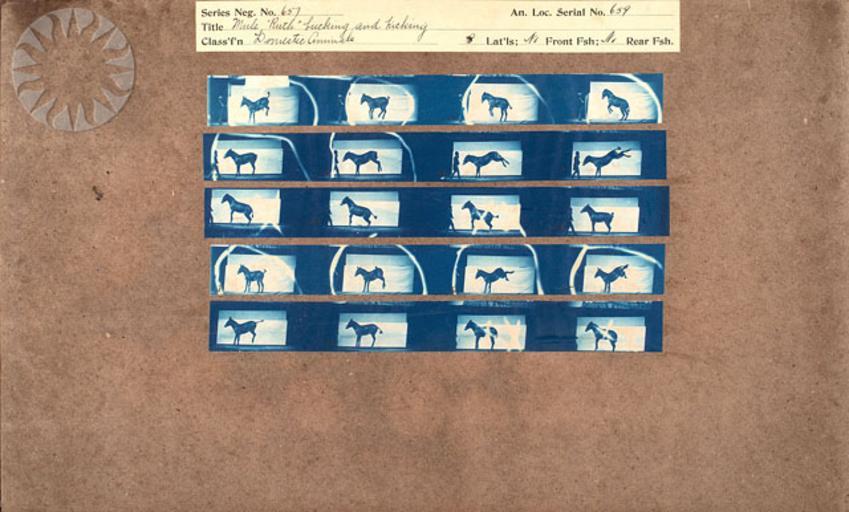 Series Neg. No. 657 An. Loc. Serial No. 659
Title Mule "Ruth" bucking and kicking
Class'f'n Domestic Animals 8 Lat'ls; No Front Fsh; No Rear Fsh.